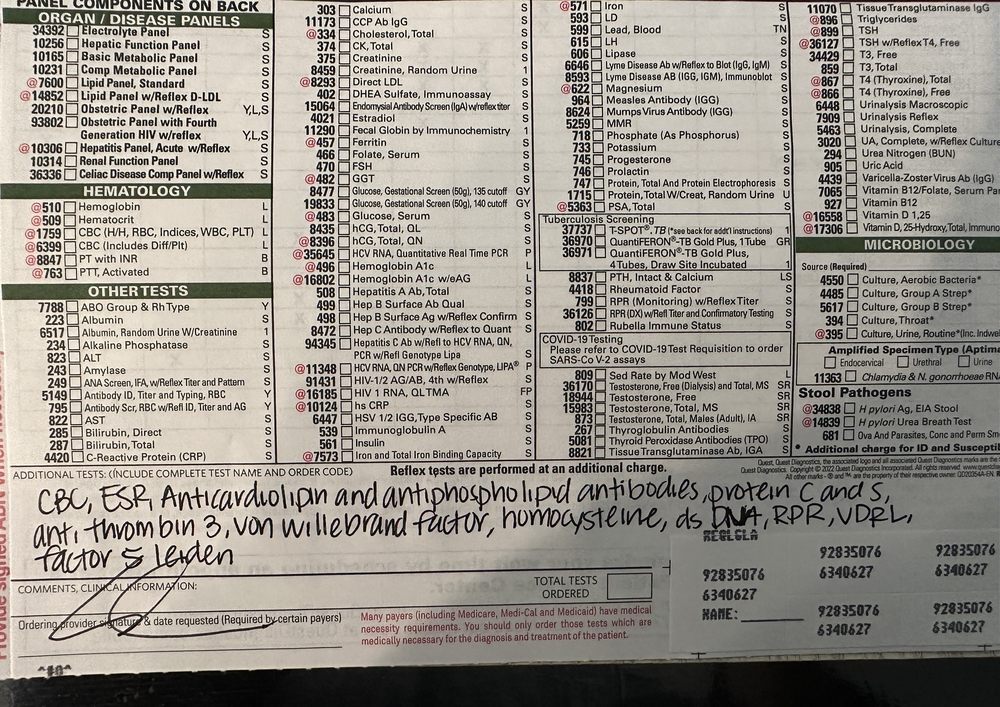 PANEL COMPONENTS ON BACK
ORGAN / DISEASE PANELS
34392 Electrolyte Panel S
10256 Hepatic Function Panel S
10165 Basic Metabolic Panel S
10231 Comp Metabolic Panel S
@7600 Lipid Panel, Standard S
@14852 Lipid Panel w/Reflex D-LDL S
20210 Obstetric Panel w/Reflex Y,L,S
93802 Obstetric Panel with Fourth
Generation HIV w/reflex Y,L,S
@10306 Hepatitis Panel, Acute w/Reflex S
10314 Renal Function Panel S
36336 Celiac Disease Comp Panel w/Reflex S
HEMATOLOGY
@510 Hemoglobin L
@509 Hematocrit L
@1759 CBC (H/H, RBC, Indices, WBC, PLT) L
@6399 CBC (Includes Diff/Plt) L
@8847 PT with INR B
@763 PTT, Activated B
OTHER TESTS
7788 ABO Group & Rh Type Y
223 Albumin S
6517 Albumin, Random Urine W/Creatinine 1
234 Alkaline Phosphatase S
823 ALT S
243 Amylase S
249 ANA Screen, IFA, w/Reflex Titer and Pattern S
5149 Antibody ID, Titer and Typing, RBC Y
795 Antibody Scr, RBC w/Refl ID, Titer and AG Y
822 AST S
285 Bilirubin, Direct S
287 Bilirubin, Total S
4420 C-Reactive Protein (CRP) S
303 Calcium S
11173 CCP Ab IgG S
@334 Cholesterol, Total S
374 CK, Total S
375 Creatinine S
8459 Creatinine, Random Urine 1
@8293 Direct LDL S
402 DHEA Sulfate, Immunoassay S
15064 Endomysial Antibody Screen (IgA) w/reflex titer S
4021 Estradiol S
11290 Fecal Globin by Immunochemistry 1
@457 Ferritin S
466 Folate, Serum S
470 FSH S
@482 GGT S
8477 Glucose, Gestational Screen (50g), 135 cutoff GY
19833 Glucose, Gestational Screen (50g), 140 cutoff GY
@483 Glucose, Serum S
8435 hCG, Total, QL S
@8396 hCG, Total, QN S
@35645 HCV RNA, Quantitative Real Time PCR P
@496 Hemoglobin A1c L
@16802 Hemoglobin A1c w/eAG L
508 Hepatitis A Ab, Total S
499 Hep B Surface Ab Qual S
498 Hep B Surface Ag w/Reflex Confirm S
8472 Hep C Antibody w/Reflex to Quant S
94345 Hepatitis C Ab w/Refl to HCV RNA, QN,
PCR w/Refl Genotype Lipa S
@11348 HCV RNA, QN PCR w/Reflex Genotype, LIPA® P
91431 HIV-1/2 AG/AB, 4th w/Reflex S
@16185 HIV 1 RNA, QL TMA FP
@10124 hs CRP S
6447 HSV 1/2 IGG, Type Specific AB S
539 Immunoglobulin A S
561 Insulin S
@7573 Iron and Total Iron Binding Capacity S
@571 Iron S
593 LD S
599 Lead, Blood TN
615 LH S
606 Lipase S
6646 Lyme Disease Ab w/Reflex to Blot (IgG, IgM) S
8593 Lyme Disease AB (IGG, IGM), Immunoblot S
@622 Magnesium S
964 Measles Antibody (IGG) S
8624 Mumps Virus Antibody (IGG) S
5259 MMR S
718 Phosphate (As Phosphorus) S
733 Potassium S
745 Progesterone S
746 Prolactin S
747 Protein, Total And Protein Electrophoresis S
1715 Protein, Total W/Creat, Random Urine U
@5363 PSA, Total S
Tuberculosis Screening
37737 T-SPOT.TB (*see back for addt'l instructions) 1
36970 QuantiFERON®-TB Gold Plus, 1 Tube GR
36971 QuantiFERON®-TB Gold Plus,
4 Tubes, Draw Site Incubated 1
8837 PTH, Intact & Calcium LS
4418 Rheumatoid Factor S
799 RPR (Monitoring) w/Reflex Titer S
36126 RPR (DX) w/Refl Titer and Confirmatory Testing S
802 Rubella Immune Status S
COVID-19 Testing
Please refer to COVID-19 Test Requisition to order
SARS-Co V-2 assays
809 Sed Rate by Mod West L
36170 Testosterone, Free (Dialysis) and Total, MS SR
18944 Testosterone, Free SR
15983 Testosterone, Total, MS SR
873 Testosterone, Total, Males (Adult), IA SR
267 Thyroglobulin Antibodies S
5081 Thyroid Peroxidase Antibodies (TPO) S
8821 Tissue Transglutaminase Ab, IGA S
11070 Tissue Transglutaminase IgG
@896 Triglycerides
@899 TSH
@36127 TSH w/Reflex T4, Free
34429 T3, Free
859 T3, Total
@867 T4 (Thyroxine), Total
@866 T4 (Thyroxine), Free
6448 Urinalysis Macroscopic
7909 Urinalysis Reflex
5463 Urinalysis, Complete
3020 UA, Complete, w/Reflex Culture
294 Urea Nitrogen (BUN)
905 Uric Acid
4439 Varicella-Zoster Virus Ab (IgG)
7065 Vitamin B12/Folate, Serum Pa
927 Vitamin B12
@16558 Vitamin D 1,25
@17306 Vitamin D, 25-Hydroxy, Total, Immuno
MICROBIOLOGY
Source (Required)
4550 Culture, Aerobic Bacteria*
4485 Culture, Group A Strep*
5617 Culture, Group B Strep*
394 Culture, Throat*
@395 Culture, Urine, Routine* (Inc. Indwel
Amplified Specimen Type (Aptima
Endocervical Urethral Urine
11363 Chlamydia & N. gonorrhoeae RNA
Stool Pathogens
@34838 H pylori Ag, EIA Stool
@14839 H pylori Urea Breath Test
681 Ova And Parasites, Conc and Perm Sm
* Additional charge for ID and Suscepti
Quest, Quest Diagnostics, the associated logo and all associated Quest Diagnostics marks are the
Quest Diagnostics. Copyright © 2022 Quest Diagnostics Incorporated. All rights reserved. www.questdia
All other marks - ® and ™ are the property of their respective owner. QD20354A-EN.
Reflex tests are performed at an additional charge.
ADDITIONAL TESTS: (INCLUDE COMPLETE TEST NAME AND ORDER CODE)
CBC, ESR, Anticardiolipin and antiphospholipid antibodies, protein C and S,
anti thrombin 3, von willebrand factor, homocysteine, ds DNA, RPR, VDRL,
factor 5 leiden
COMMENTS, CLINICAL INFORMATION:
TOTAL TESTS
ORDERED
Ordering provider signature & date requested (Required by certain payers)
Many payers (including Medicare, Medi-Cal and Medicaid) have medical
necessity requirements. You should only order those tests which are
medically necessary for the diagnosis and treatment of the patient.
92835076
6340627
92835076
6340627
92835076
6340627
NAME:
92835076
6340627
92835076
6340627